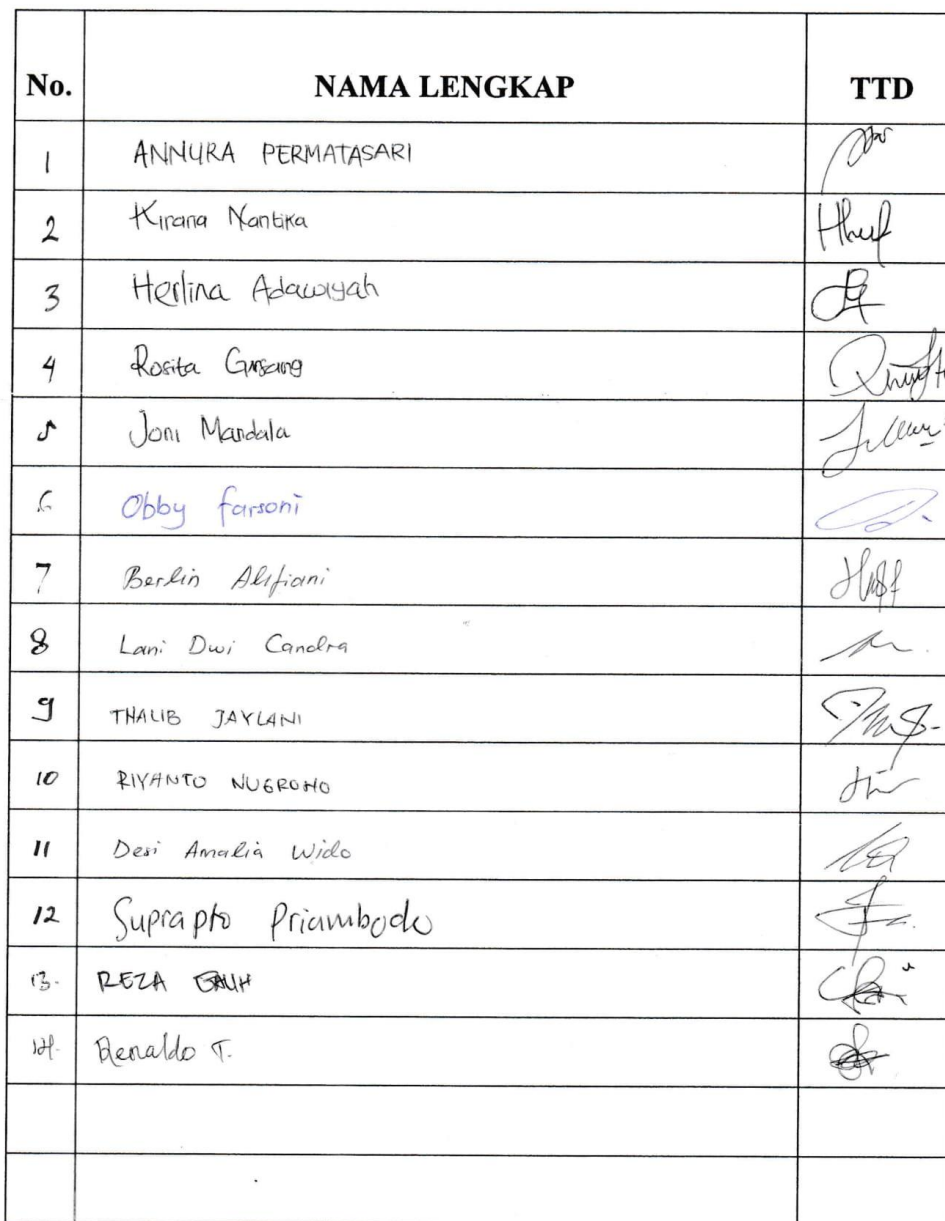 No. NAMA LENGKAP TTD
1 ANNURA PERMATASARI
2 Kirana Nantika
3 Herlina Adawiyah
4 Rosita Gursang
5 Joni Mandala
6 Obby farsoni
7 Berlin Alifiani
8 Lani Dwi Candra
9 THALIB JAYLANI
10 RIYANTO NUGROHO
11 Desi Amalia Wido
12 Suprapto Priambodo
13. REZA GALIH
14. Renaldo T.